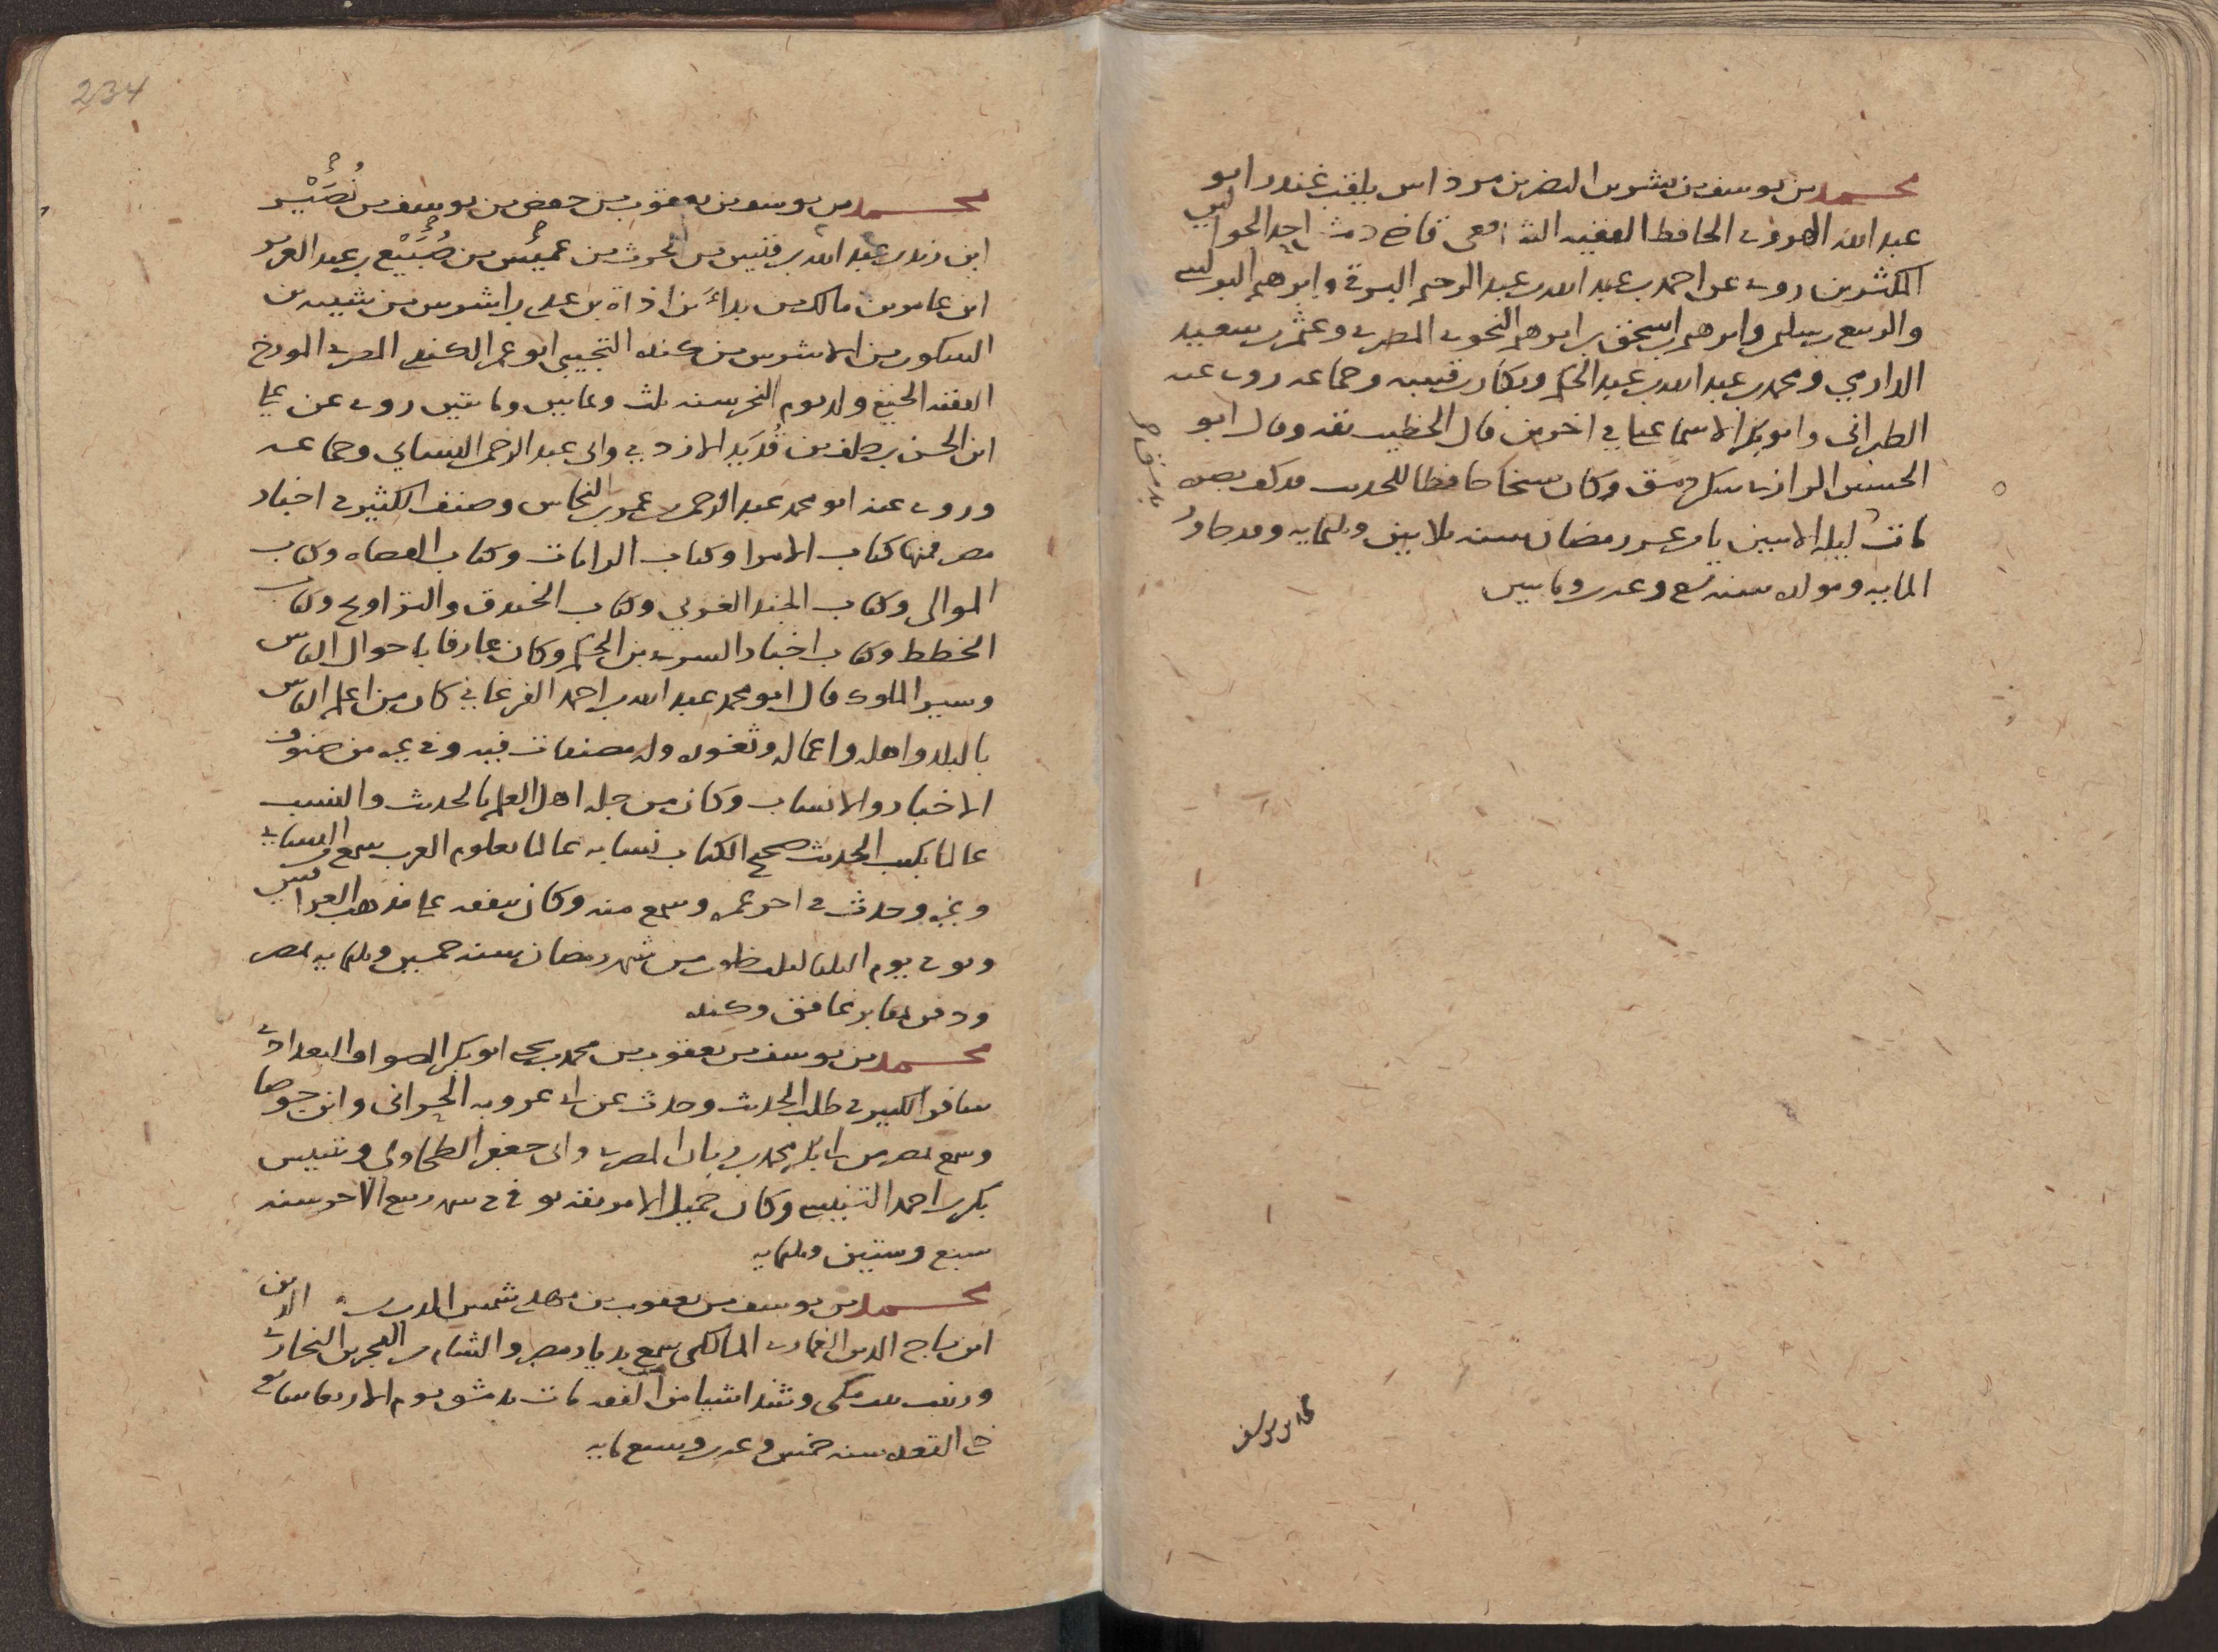 محمد بن يوسف بن بشر بن النضر بن مرداس يلقب غندر ابو
عبد الله الهروى الحافظ الفقيه الشافعى احد الجوالين
المكثرين روى عن احمد بن عبد الله بن عبد الرحيم البرقى وابرهيم البرلسى
والربيع بن سليمن وابرهيم بن اسحق بن ابرهيم النحوى المصرى وعثمن بن سعيد
الدارمي ومحمد بن عبد الله بن عبد الحكم وبكار بن قتيبه وجماعه روى عنه
الطبرانى وابو بكر الاسماعيلي في اخرين قال الخطيب ثقه وقال ابو
الحسين الرازى سكن دمشق وكان شيخا حافظا للحديث قد كف بصره
مات ليله الاثنين ثانى عشر رمضان سنه ثلاثين وثلثمايه وقد جاوز
المايه ومولده سنه تسع وعشرين ومايتين
محمد بن يوسف
234
محمد بن يوسف بن يعقوب بن حفص بن يوسف بن نُصَيْر
ابن زيد بن عبد الله بن قيس بن الحرث بن عميس بن ضُبَيْع بن عبد العزيز
ابن عامر بن مالك بن بداء بن اذاة بن عدى بن اشرس بن شبيب بن
السكون بن الاشرس بن كنده التجيبي ابو عمر الكندى المصرى المورخ
الفقيه الحنفي ولد يوم النحر سنه ثلث وثمانين ومايتين روى عن على
ابن الحسن بن خلف بن قُدَيد الازدي وابى عبد الرحمن النسائي وجماعه
وروى عنه ابو محمد عبد الرحمن بن عمر بن النحاس وصنف الكثير فى اخبار
مصر فمنها كتاب الامرا وكتاب الرايات وكتاب القضاه وكتاب
الموالى وكتاب الجند الغربي وكتاب الخندق والتراويح وكتاب
الخطط وكتاب اخبار السرى بن الحكم وكان عارفا باحوال الناس
وسير الملوك قال ابو محمد عبد الله بن احمد الفرغاني كان من اعلم الناس
بالبلد واهله واعماله وثغوره وله مصنفات فيه وفى غيره من صنوف
الاخبار والانساب وكان من جله اهل العلم بالحديث والنسب
عالما بكتب الحديث صحيح الكتاب نسابه عالما بعلوم العرب سمع من النسائى
وغيره وحدث فى اخر عمره وسمع منه وكان يتفقه على مذهب العراقيين
وتوفى يوم الثلثا لثلث خلون من شهر رمضان سنه خمسين وثلثمايه بمصر
ودفن بمقابر غافق وكنده
محمد بن يوسف بن يعقوب بن محمد بن يحيى ابو بكر الصواف البغدادى
سافر الكثير فى طلب الحديث وحدث عن ابى عروبه الحراني وابن جوصا
وسمع بمصر من ابى بكر محمد بن زبان المصرى وابى جعفر الطحاوى وبتنيس
بكر بن احمد التنيسى وكان جميل الامر ثقه توفى فى شهر ربيع الاخر سنه
سبع وستين وثلثمايه
محمد بن يوسف بن يعقوب بن مهدى شمس الدين
ابن تاج الدين الغمارى المالكى سمع بديار مصر والشام من الفخر بن البخارى
وزينب بنت مكى وشدا شيا من الفقه مات بدمشق يوم الاربعا سابع
ذى القعده سنه خمس وعشرين وسبع مايه